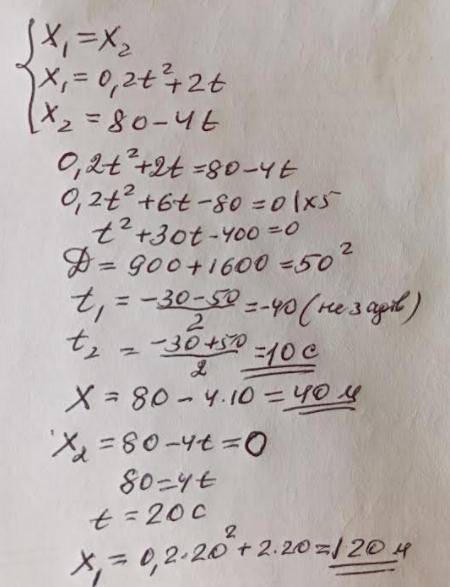 x₁ = x₂
x₁ = 0,2t² + 2t
x₂ = 80 - 4t
0,2t² + 2t = 80 - 4t
0,2t² + 6t - 80 = 0 | x5
t² + 30t - 400 = 0
D = 900 + 1600 = 50²
t₁ = (-30-50)/2 = -40 (не задов)
t₂ = (-30+50)/2 = 10 с
x = 80 - 4·10 = 40 м
x₂ = 80 - 4t = 0
80 = 4t
t = 20 с
x₁ = 0,2·20² + 2·20 = 120 м